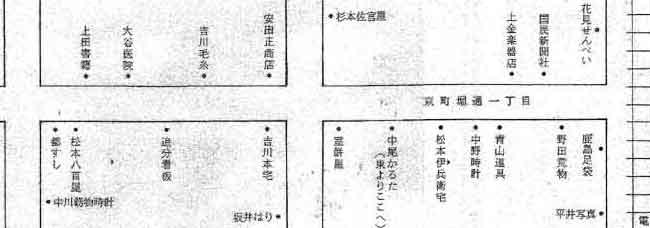 花見せんべい
国民新聞社
上金楽器店
杉本佐官屋
安田正商店
吉川毛糸
大谷医院
上田書籍
京町堀通一丁目
鹿島足袋
野田荒物
青山道具
中野時計
松本伊兵衛宅
中尾かるた
(東よりここへ)
平井写真
吉川本宅
追分看板
松本八百屋
都すし
坂井はり
電